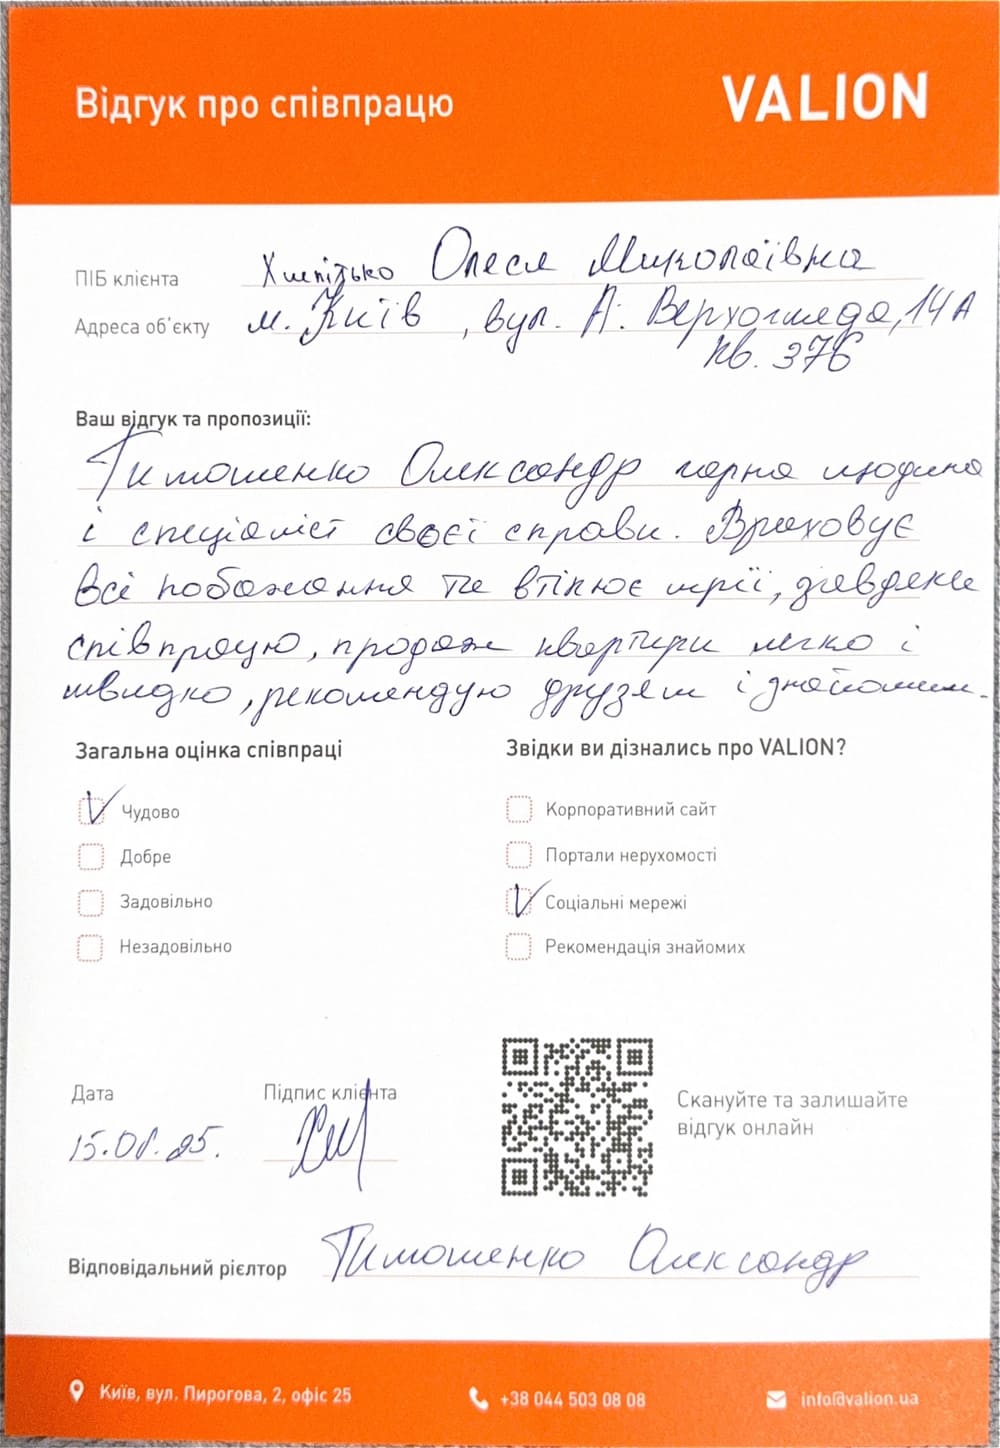 Відгук про співпрацю
VALION
ПІБ клієнта Олеся Миколаївна
Адреса об'єкту м. Київ, вул. А. Верхогляда, 14А
кв. 376
Ваш відгук та пропозиції:
Тимошенко Олександр гарна людина
і спеціаліст своєї справи. Враховує
всі побажання та втілює мрії, завдяки
співпрацю, продаж квартири легко і
швидко, рекомендую друзям і знайомим.
Загальна оцінка співпраці
Чудово
Добре
Задовільно
Незадовільно
Звідки ви дізнались про VALION?
Корпоративний сайт
Портали нерухомості
Соціальні мережі
Рекомендація знайомих
Дата
15.08.25.
Підпис клієнта
Скануйте та залишайте
відгук онлайн
Відповідальний рієлтор Тимошенко Олександр
Київ, вул. Пирогова, 2, офіс 25
+38 044 503 08 08
info@valion.ua